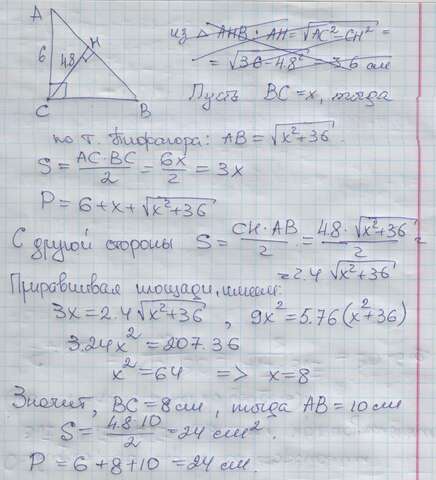 A
6
4.8
H
C
B
из △ AHB: AH = √AC² - CH² =
= √36 - 4.8² = 3.6 см
Пусть BC = x, тогда
по т. Пифагора: AB = √x² + 36.
S = AC·BC/2 = 6x/2 = 3x
P = 6 + x + √x² + 36
С другой стороны S = CH·AB/2 = 4.8·√x² + 36/2 =
= 2.4 √x² + 36
Приравнивая площади, имеем:
3x = 2.4 √x² + 36 , 9x² = 5.76 (x² + 36)
3.24x² = 207.36
x² = 64 => x = 8
Значит, BC = 8 см, тогда AB = 10 см
S = 4.8·10/2 = 24 см².
P = 6 + 8 + 10 = 24 см.